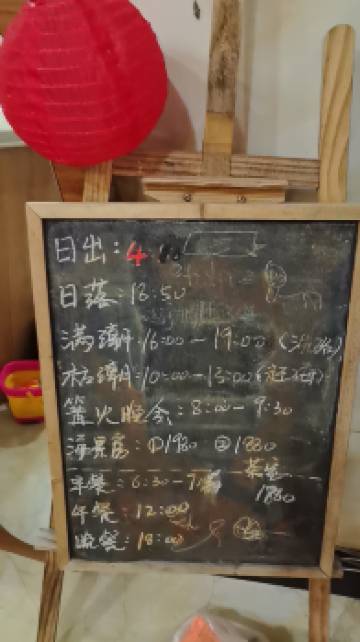 日出：4
日落：18:50
满潮：16:00－19:00
枯潮：10:00－13:00
篝火晚会：8:00－9:30
海景房：①1980 ②1880
早餐：6:30－
1980
午餐：12:00
晚餐：18:00